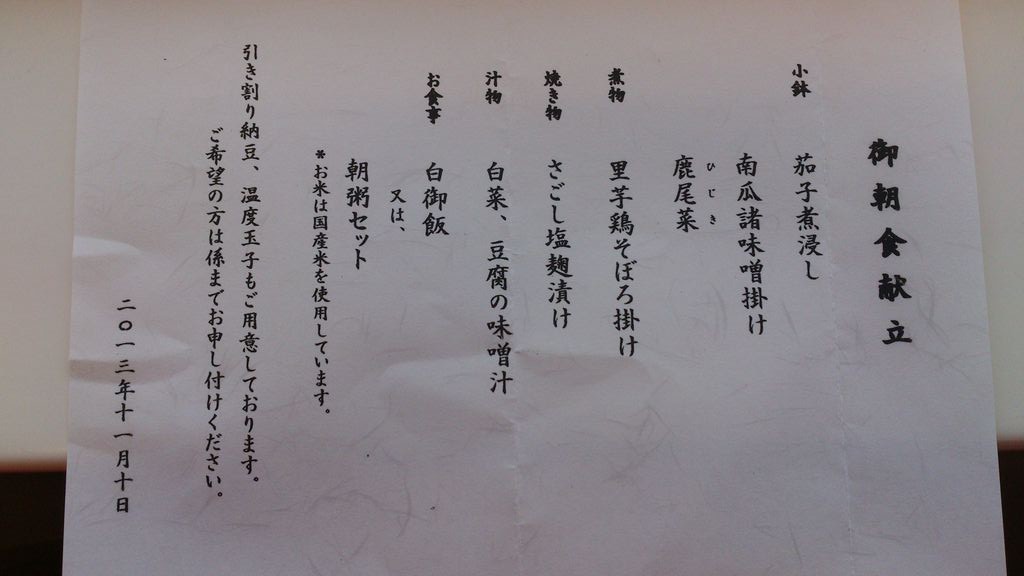 御朝食献立
小鉢 茄子煮浸し
南瓜諸味噌掛け
鹿尾菜
ひじき
煮物 里芋鶏そぼろ掛け
焼き物 さごし塩麹漬け
汁物 白菜、豆腐の味噌汁
お食事 白御飯
又は、
朝粥セット
*お米は国産米を使用しています。
引き割り納豆、温度玉子もご用意しております。
ご希望の方は係までお申し付けください。
二〇一三年十一月十日